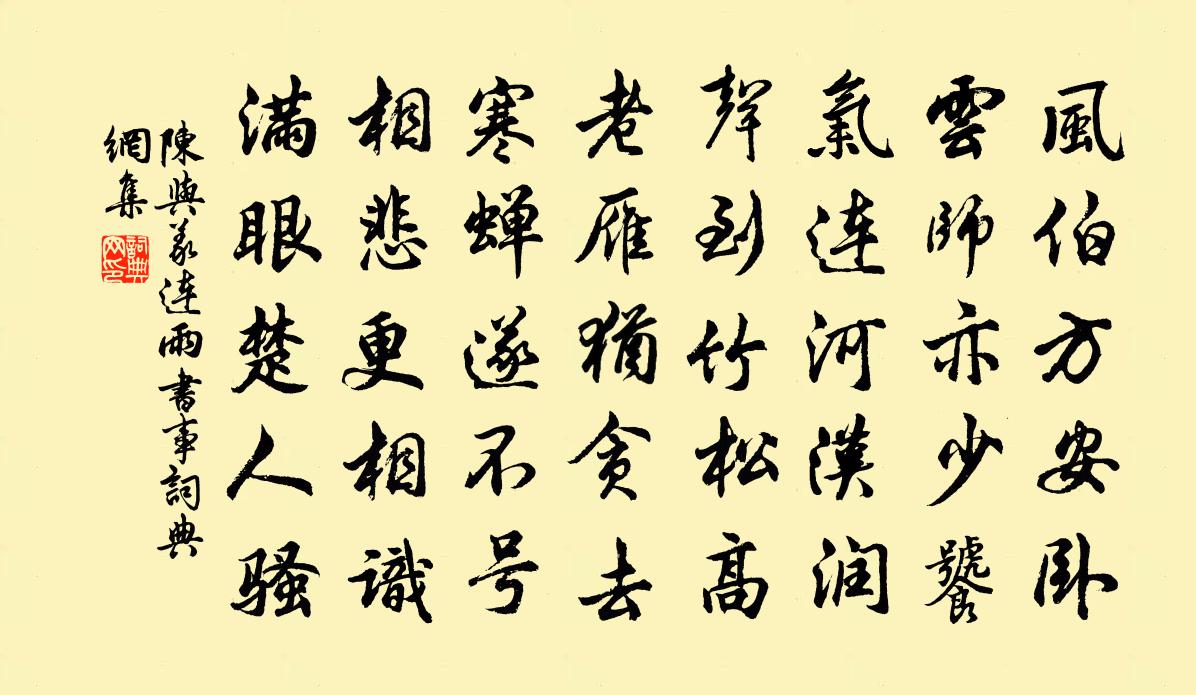 風伯方安卧
雲師亦少饕
氣連河漢润
聲到竹松高
老雁猶贪去
寒蝉遂不号
相悲更相識
滿眼楚人骚
陳與義連雨書事詞典
網集
詞典
网印